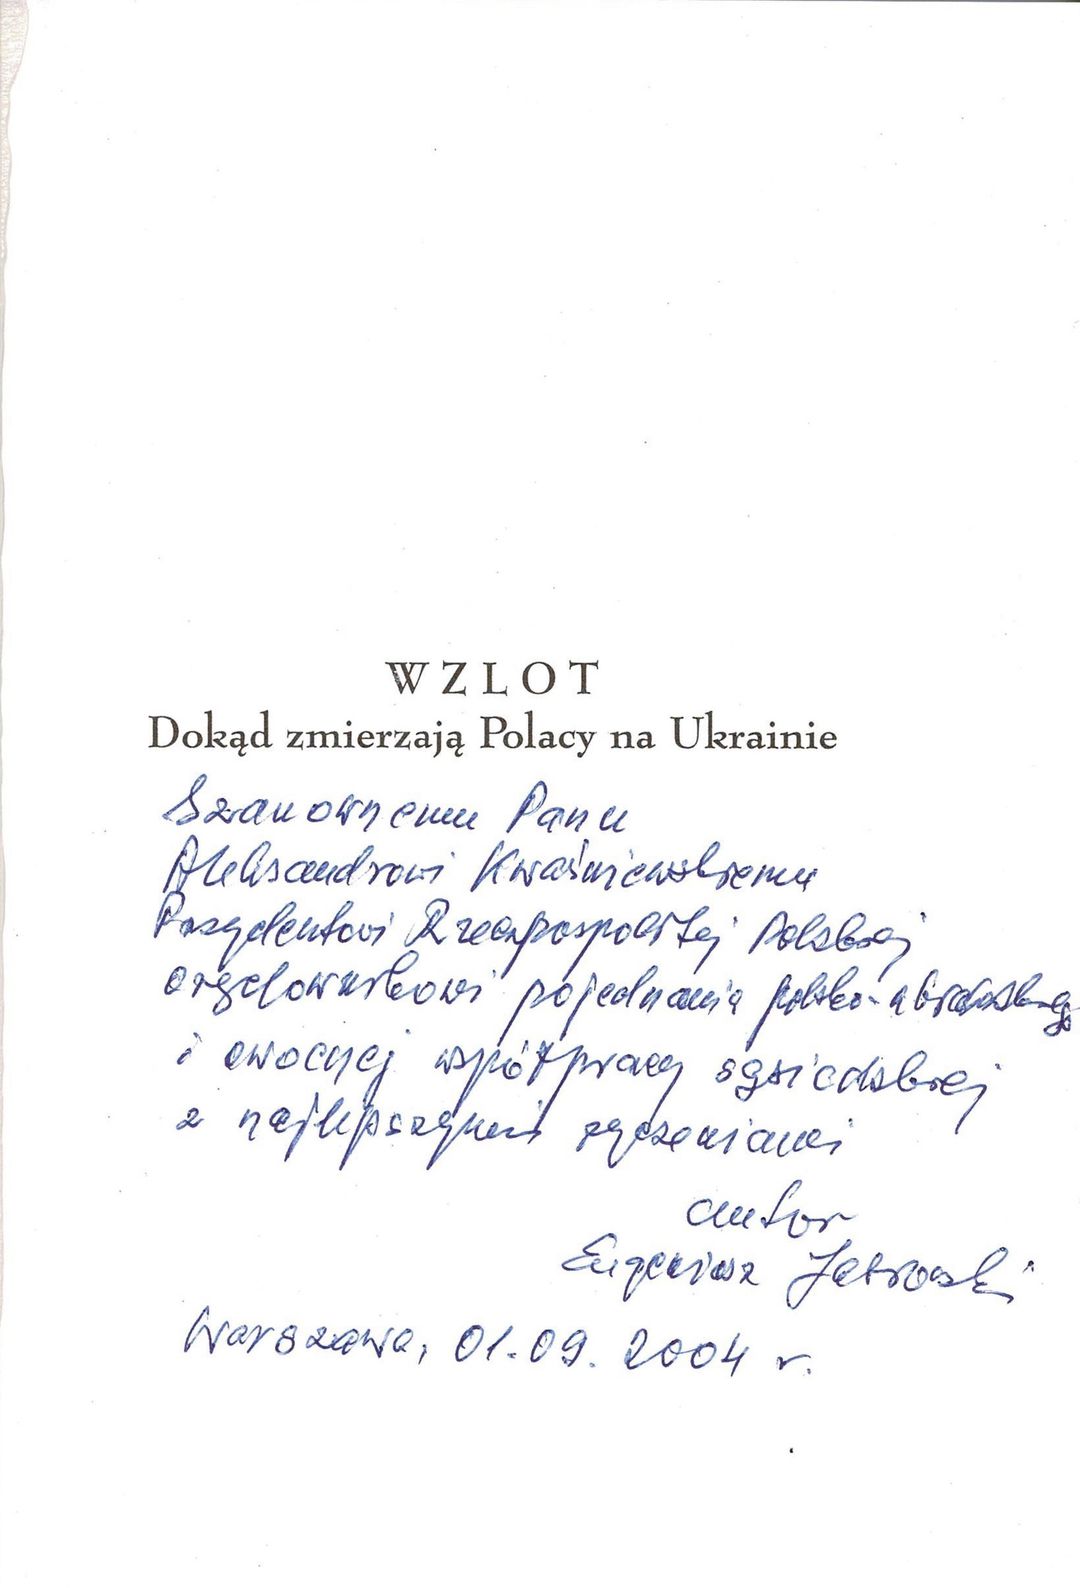 WZLOT
Dokąd zmierzają Polacy na Ukrainie
Szanownemu Panu
Aleksandrowi Kwaśniewskiemu
Prezydentowi Rzeczpospolitej Polskiej
orędownikowi pojednania polsko-ukraińskiego
i owocnej współpracy sąsiedzkiej
z najlepszymi życzeniami
autor
Eugeniusz
Warszawa, 01.09.2004 r.